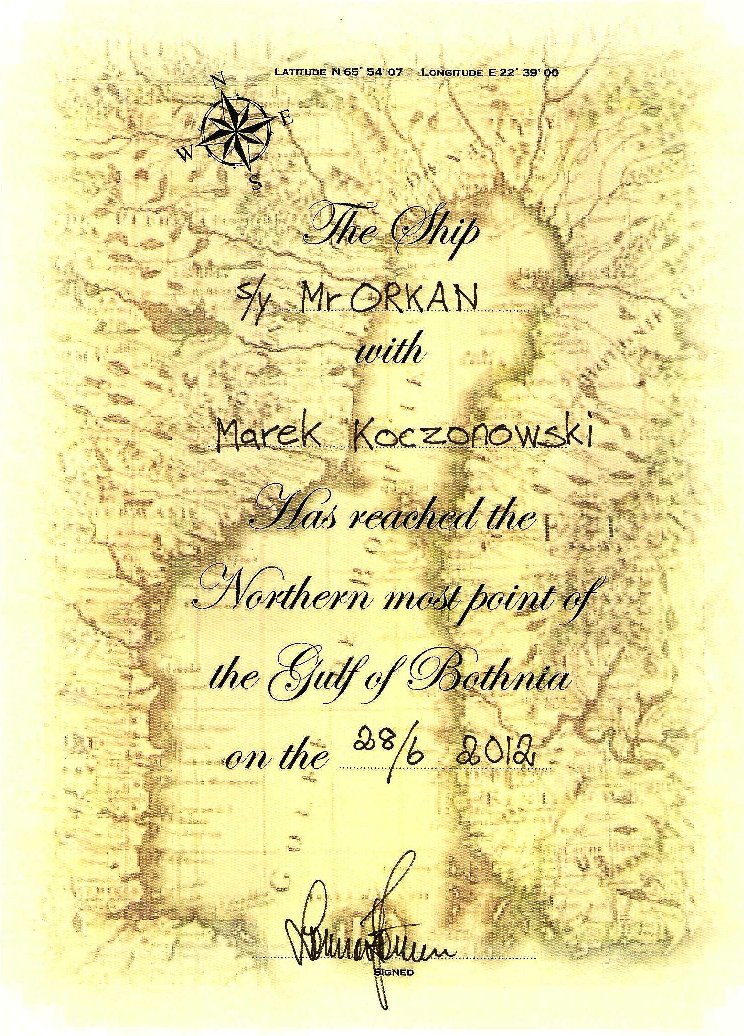 LATITUDE N 65° 54' 07 LONGITUDE E 22° 39' 00
N
E
W
S
The Ship
s/y Mr ORKAN
with
Marek Koczonowski
Has reached the
Northern most point of
the Gulf of Bothnia
on the 28/6 2012
SIGNED